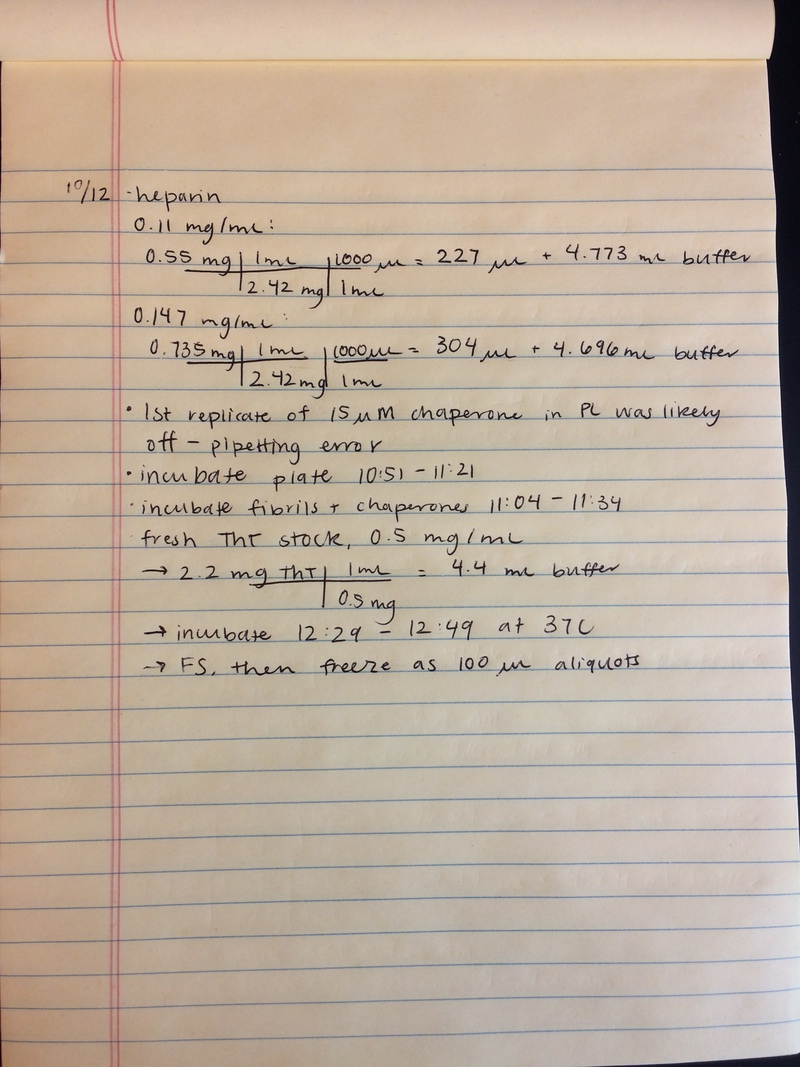 10/12 - heparin
0.11 mg/mL:
0.55 mg | 1mL | 1000 µL = 227 µL + 4.773 mL buffer
2.42 mg | 1mL
0.147 mg/mL:
0.735 mg | 1mL | 1000 µL = 304 µL + 4.696 mL buffer
2.42 mg | 1mL
• 1st replicate of 15 µM chaperone in PL was likely
off – pipetting error
• incubate plate 10:51 – 11:21
• incubate fibrils + chaperones 11:04 – 11:34
fresh ThT stock, 0.5 mg/mL
→ 2.2 mg ThT | 1mL = 4.4 mL buffer
0.5 mg
→ incubate 12:29 – 12:49 at 37C
→ FS, then freeze as 100 µL aliquots